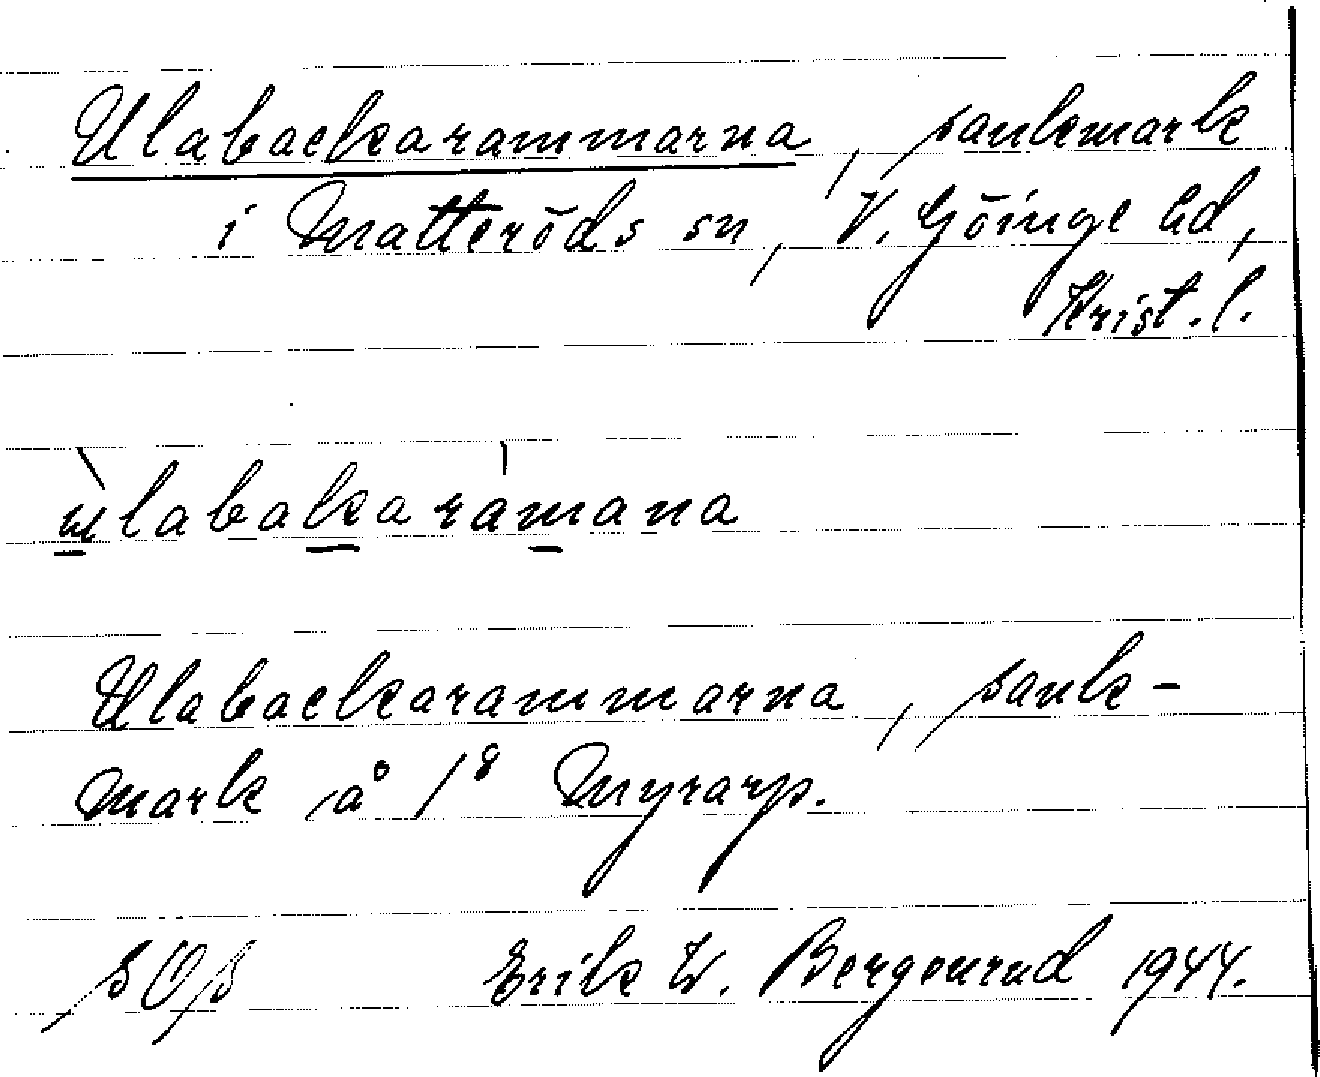 Ulabackarammarna, sankmark
i Matteröds sn, V. Göinge hd,
Krist. l.
ùlabakaràmana
Ulabackarammarna, sank-
mark å 1⁸ Myrarp.
Erik W. Bergenrud 1944.